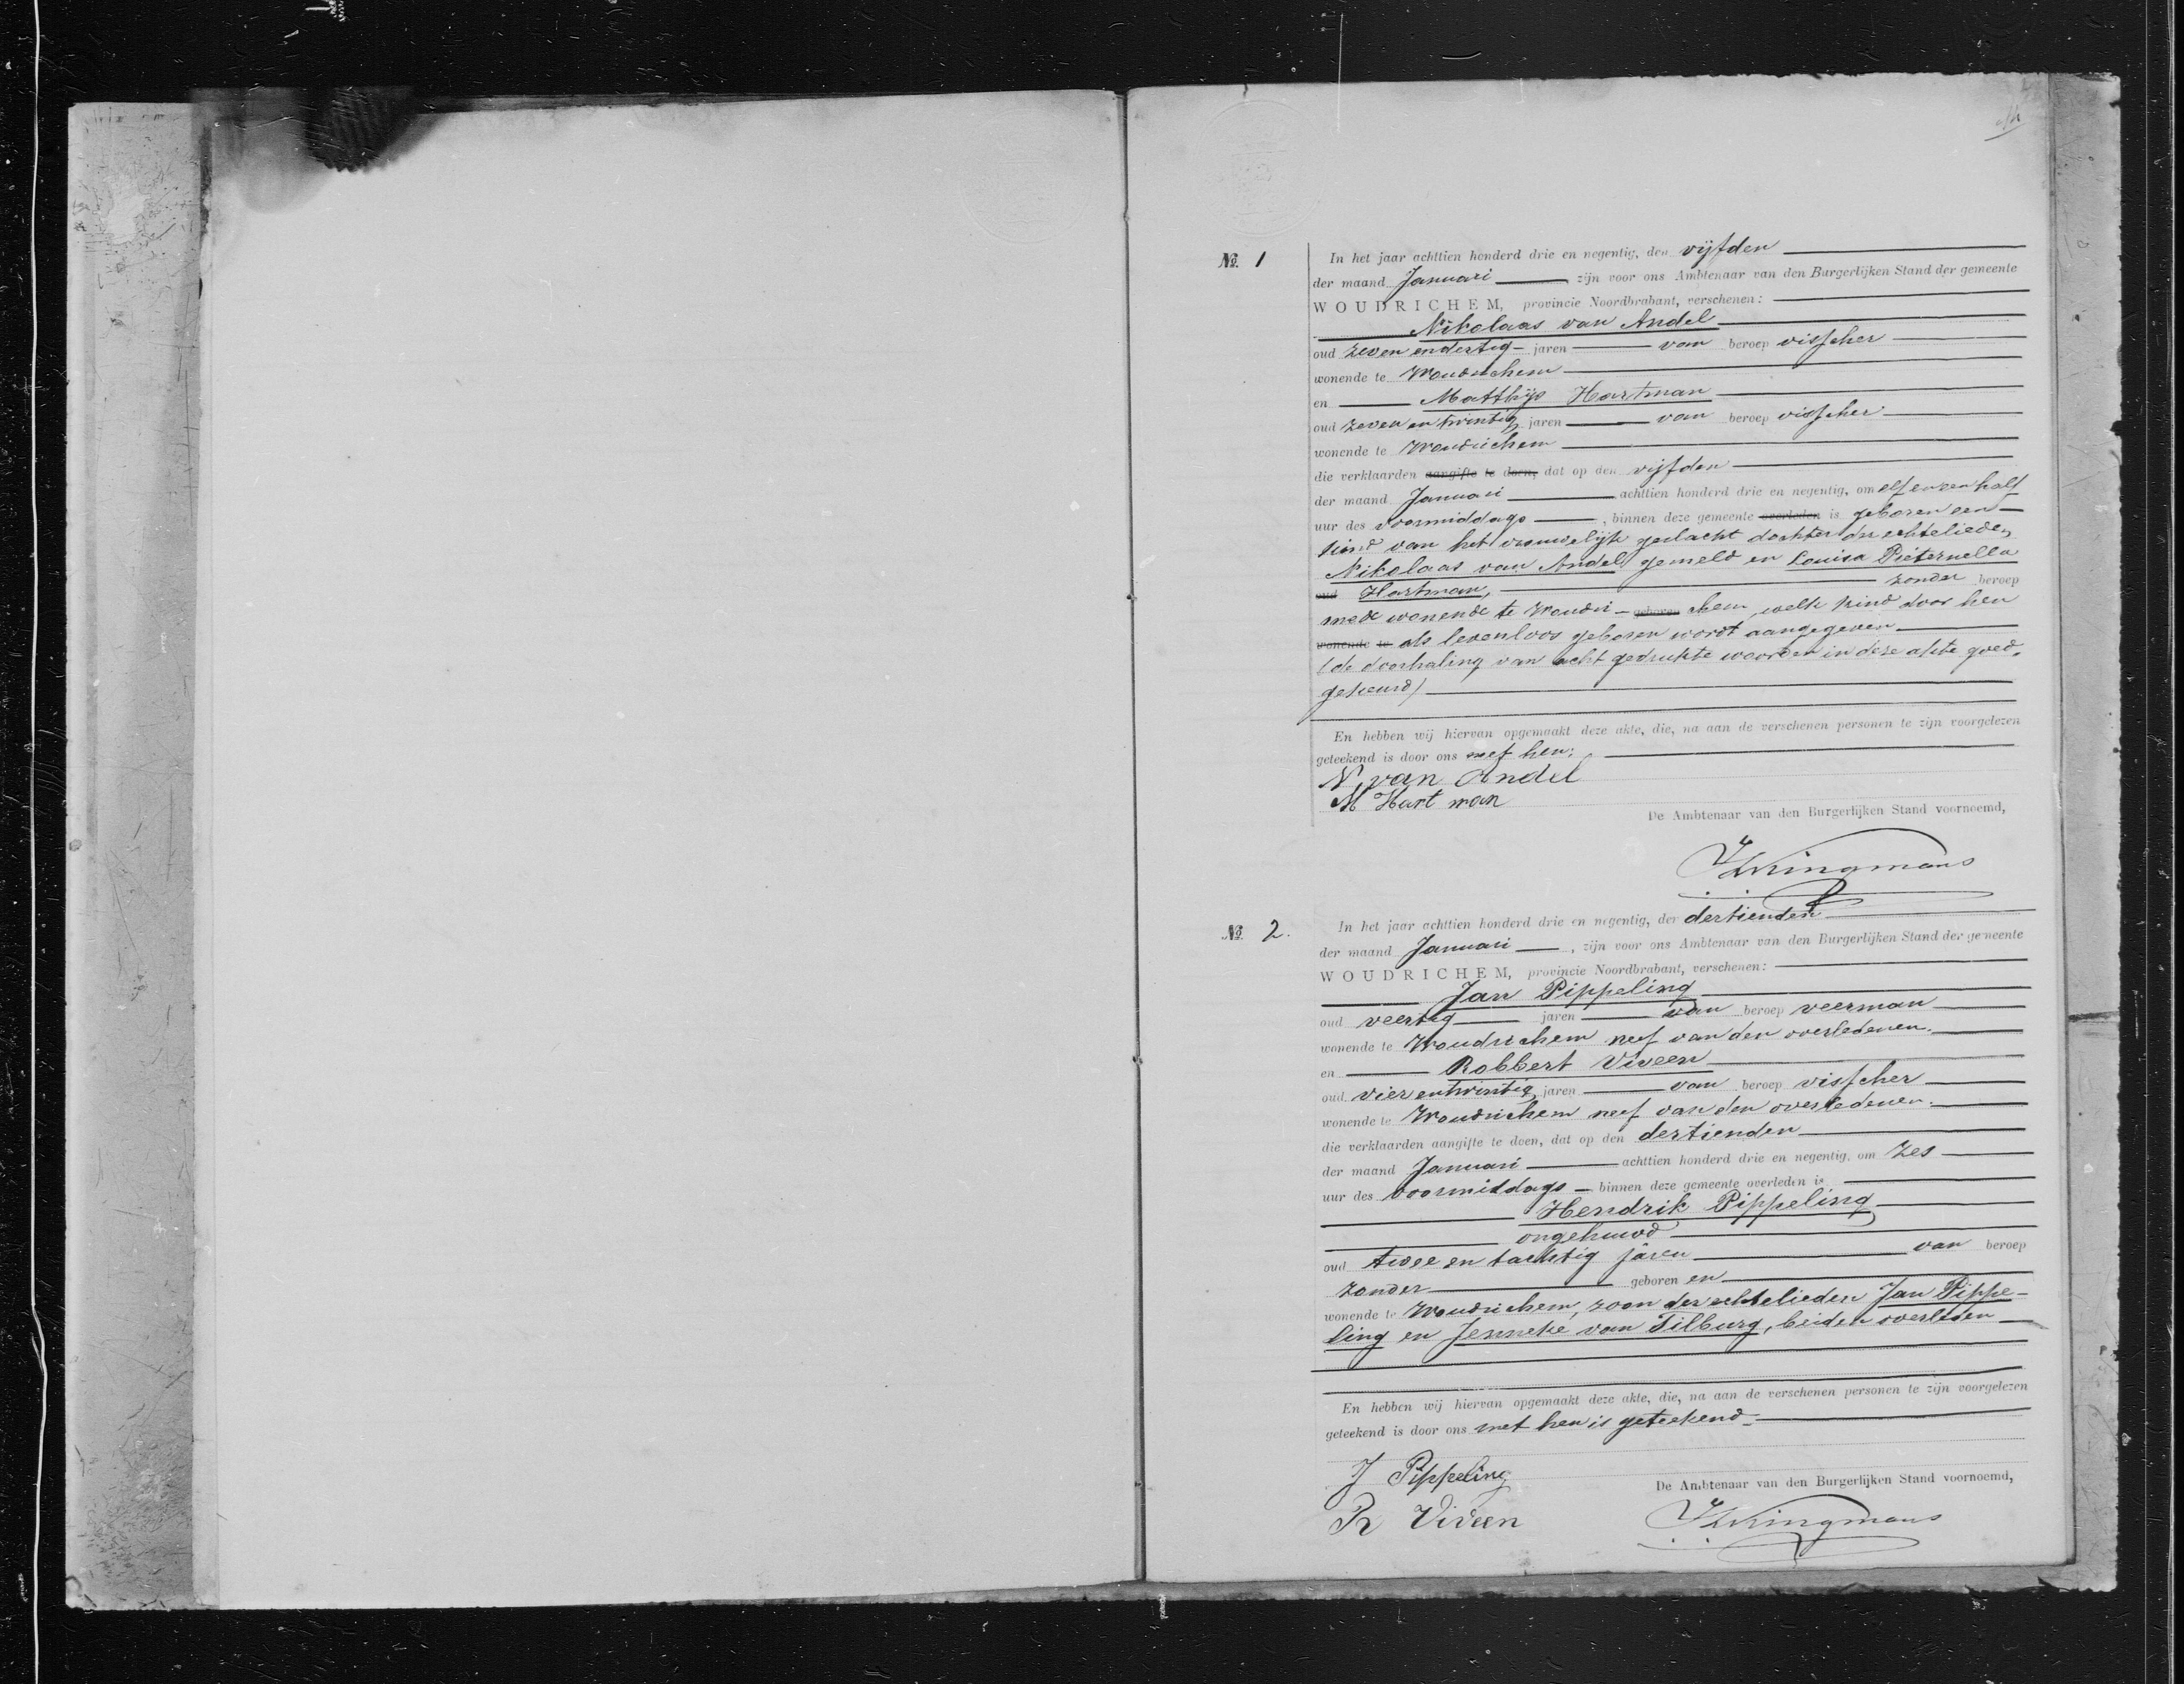 No. 1
In het jaar achttien honderd drie en negentig, den vijfden
der maand Januari zijn voor ons Ambtenaar van den Burgerlijken Stand der gemeente
WOUDRICHEM, provincie Noordbrabant, verschenen:
Nikolaas van Andel
oud zeven en dertig jaren van beroep visscher
wonende te Woudrichem
en Matthijs Hartman
oud zeven en twintig jaren van beroep visscher
wonende te Woudrichem
die verklaarden aangifte te doen, dat op den vijfden
der maand Januari achttien honderd drie en negentig, om elf en een half
uur des voormiddags, binnen deze gemeente overleden is geboren een
kind van het vrouwelijk geslacht dochter der echtelieden
Nikolaas van Andel gemeld en Louisa Pieternella
oud Hartman, zonder beroep
mede wonende te Woudri- geboren chem, welk kind door hen
wonende te als levenloos geboren wordt aangegeven
(de doorhaling van acht gedrukte woorden in deze akte goed-
gekeurd)
En hebben wij hiervan opgemaakt deze akte, die, na aan de verschenen personen te zijn voorgelezen
geteekend is door ons met hen.
N. van Andel
M Hartman
De Ambtenaar van den Burgerlijken Stand voornoemd,
No. 2.
In het jaar achttien honderd drie en negentig, der dertienden
der maand Januari, zijn voor ons Ambtenaar van den Burgerlijken Stand der gemeente
WOUDRICHEM, provincie Noordbrabant, verschenen:
Jan Pippeling
oud veertig jaren van beroep veerman
wonende te Woudrichem neef van den overledenen.
en Robbert Viveen
oud vier en twintig jaren van beroep visscher
wonende te Woudrichem neef van den overledenen.
die verklaarden aangifte te doen, dat op den dertienden
der maand Januari achttien honderd drie en negentig, om zes
uur des voormiddags binnen deze gemeente overleden is
Hendrik Pippeling
ongehuwd
oud twee en tachtig jaren van beroep
zonder geboren en
wonende te Woudrichem, zoon der echtelieden Jan Pippe-
ling en Jenneke van Tilburg, beiden overleden
En hebben wij hiervan opgemaakt deze akte, die, na aan de verschenen personen te zijn voorgelezen
geteekend is door ons met hen is geteekend.
J Pippeling
De Ambtenaar van den Burgerlijken Stand voornoemd,
R Viveen